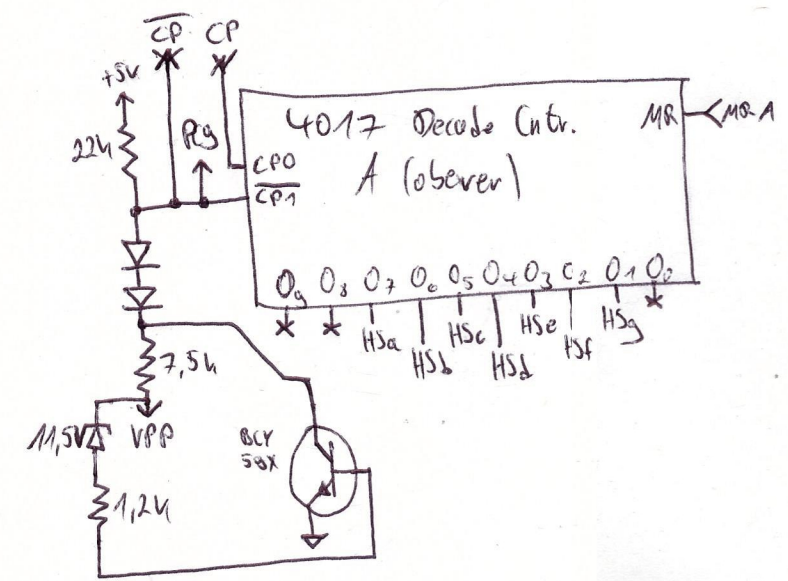 C̅P̅ CP
+5V
22k
PC9
4017 Decode Cntr.
A (oberer)
MR
MR A
CP0
C̅P̅1̅
O9 O8 O7 O6 O5 O4 O3 O2 O1 O0
HSa HSb HSc HSd HSe HSf HSg
7,5k
11,5V
VPP
BCY
59X
1,2k